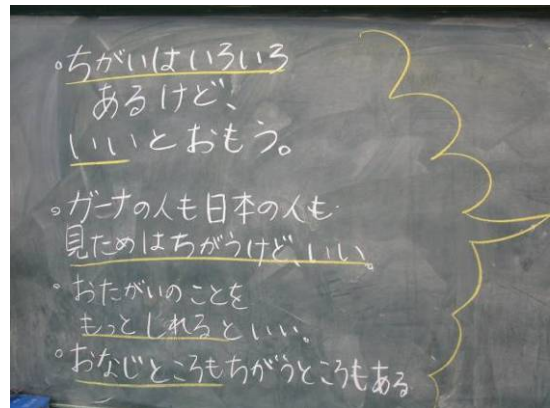 。ちがいはいろいろ
あるけど、
いいとおもう。
。ガーナの人も日本の人も
見ためはちがうけど、いい。
。おたがいのことを
もっとしれるといい。
。おなじところもちがうところもある